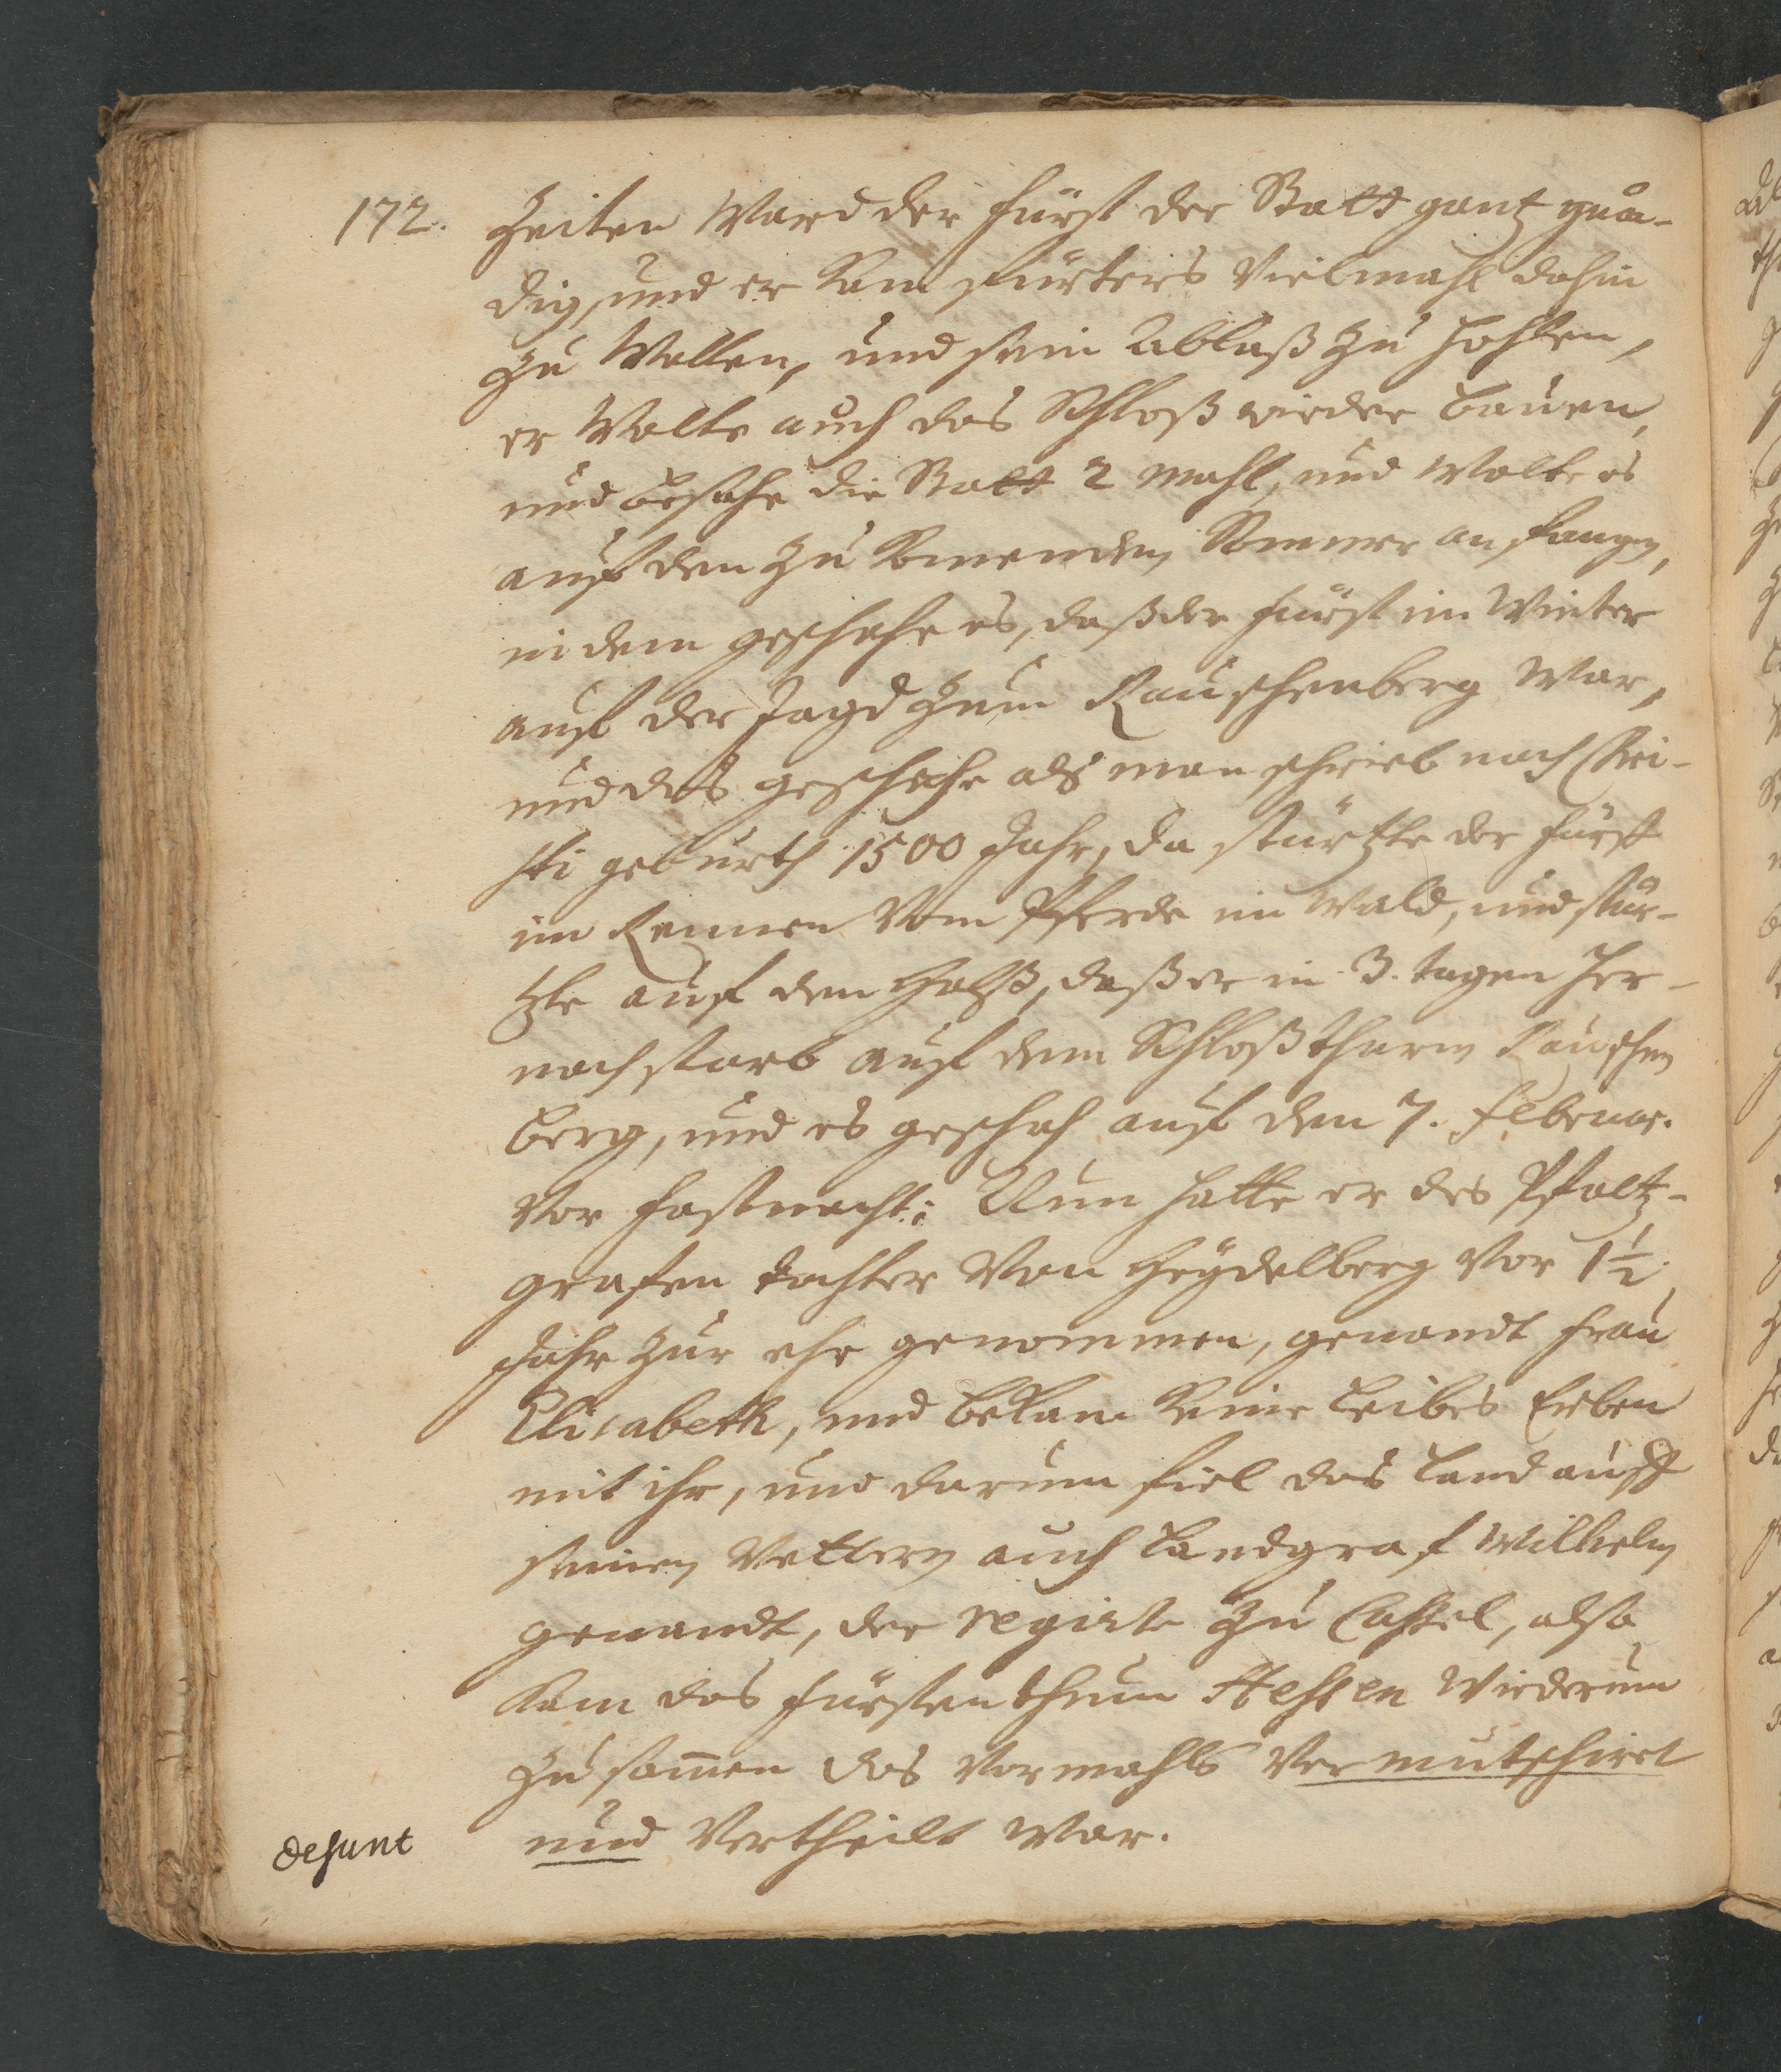 172. Zeiten Ward der Fürst der Statt gantz gnä-
dig, und er kam fürters Vielmahl dahin
zu Wallen, und sein Ablaß zu hohlen,
er Wolte auch das Schloß wieder bauen,
und besahe die Statt 2 mahl, und Wolte es
auf den zu komenden Sommer anfangen,
in dem geschahe es, daß der Fürst im Winter
auf der Jagd zum Rauschenberg War,
und das geschahe als man schrieb nach Chri-
sti geburth 1500 Jahr, da stürtzte der Fürst
im Rennen Vom Pferde im Wald, und stür-
tzte auf den Halß, daß er in 3. tagen her-
nach starb auf dem Schloß thurm Rauschen
berg, und es geschah auf den 7. Februar.
Vor Fastnacht: Nun hatte er des Pfaltz-
grafen tochter Von Heydelberg Vor 1½
Jahr zur ehe genommen, genandt Frau
Elisabeth, und bekam keine Leibes Erben
mit ihr, und darum fiel das Land auff
seinen Vettern auch Landgraf Wilhelm
genandt, der regirte zu Cassel, also
kam das Fürstenthum Hessen Wiederum
zusamen das Vormahls Vermutschiret
desunt und Vertheilt War.